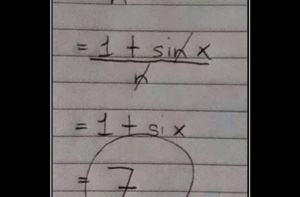 = 1 + sin x
n
= 1 + six
= 7